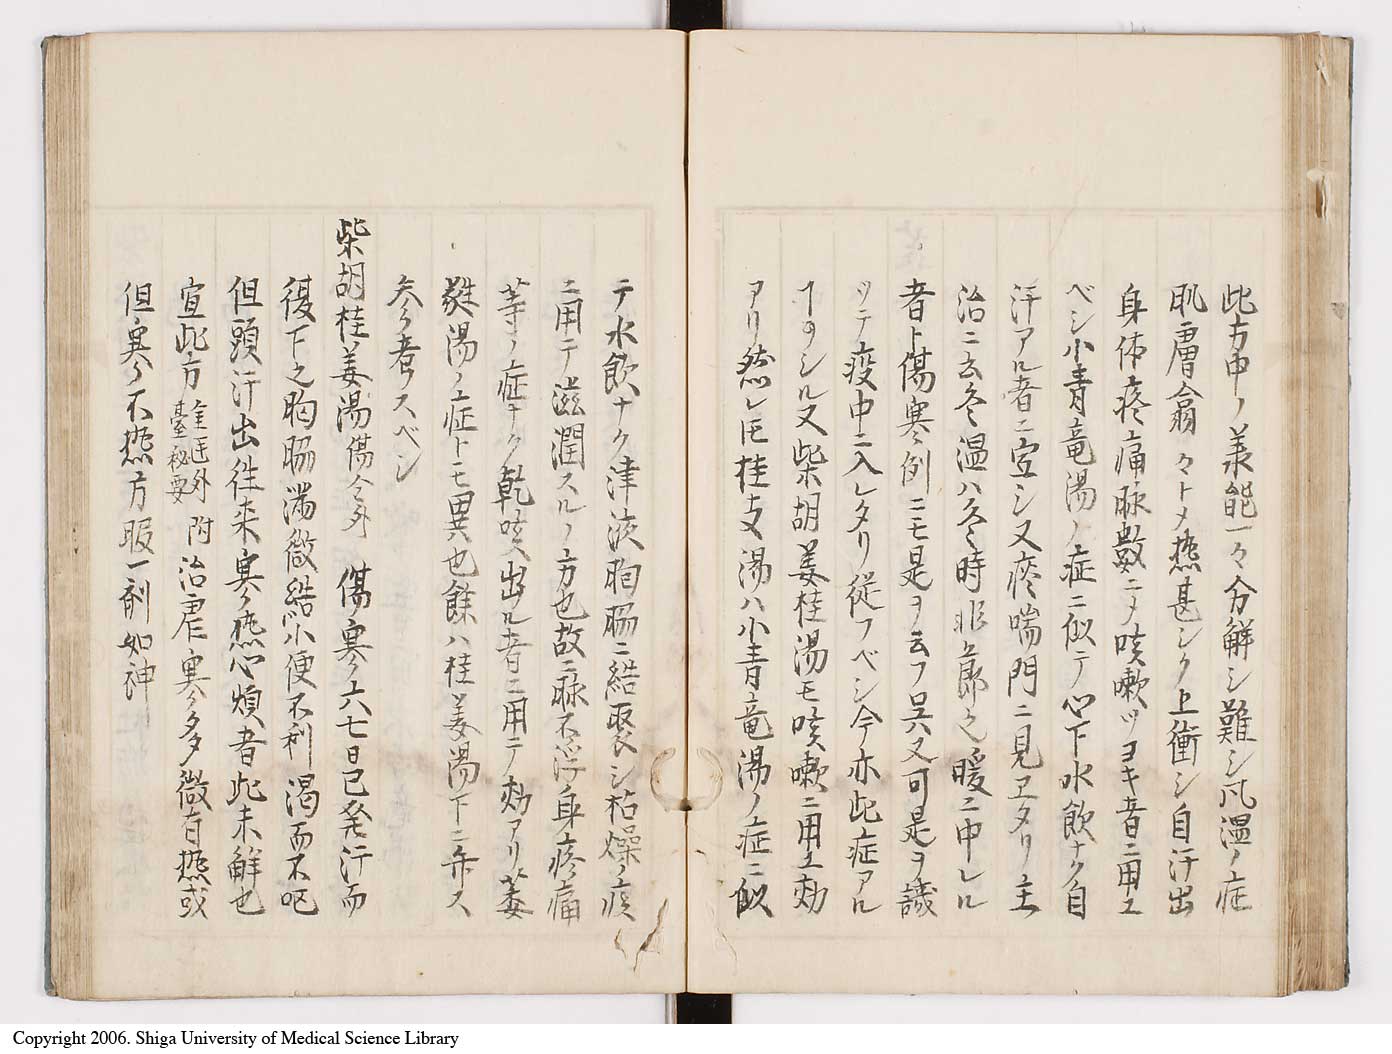 此方中ノ兼能一々分解シ難シ凡温ノ症
肌膚翕々トメ熱甚シク上衝シ自汗出
身体疼痛脉數ニメ咳嗽ツヨキ者ニ用ユ
ベシ小青竜湯ノ症ニ似テ心下水飲ナク自
汗アル者ニ宜シ又痰喘門ニ見ヱタリ主
治ニ云冬温ハ冬時非節之暖ニ中レル
者ト傷寒例ニモ是ヲ云フ呉又可是ヲ譏
ツテ疫中ニ入レタリ従フベシ今亦此症アル
ヿヲシル又柴胡姜桂湯モ咳嗽ニ用ユ効
アリ然レ𪜈桂支湯ハ小青竜湯ノ症ニ似
テ水飲ナク津液胸脇ニ結聚シ枯燥ノ痰
ニ用テ滋潤スルノ方也故ニ脉不浮身疼痛
等ノ症ナク乾咳出ル者ニ用テ効アリ萎
蕤湯ノ症トモ異也餘ハ桂姜湯下ニ弁ス
参考スベシ
柴胡桂姜湯 傷 今外 傷寒六七日已発汗而
復下之胸脇満微結小便不利渇而不呕
但頭汗出往来寒熱心煩者此未解也
宣此方 臺秘要 附 治瘧寒多微有熱或
但寒不熱方服一剤如神
Copyright 2006. Shiga University of Medical Science Library